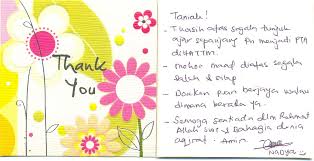 Thank
You
Taniah!
- T'kasih atas segala tunjuk
ajar sepanjang Pn menjadi PTA
di HATTM.
- Mohon maaf diatas segala
salah & silap
- Doakan puan berjaya walau
dimana berada ya.
- Semoga sentiasa dlm Rahmat
Allah swt & bahagia dunia
NADYA